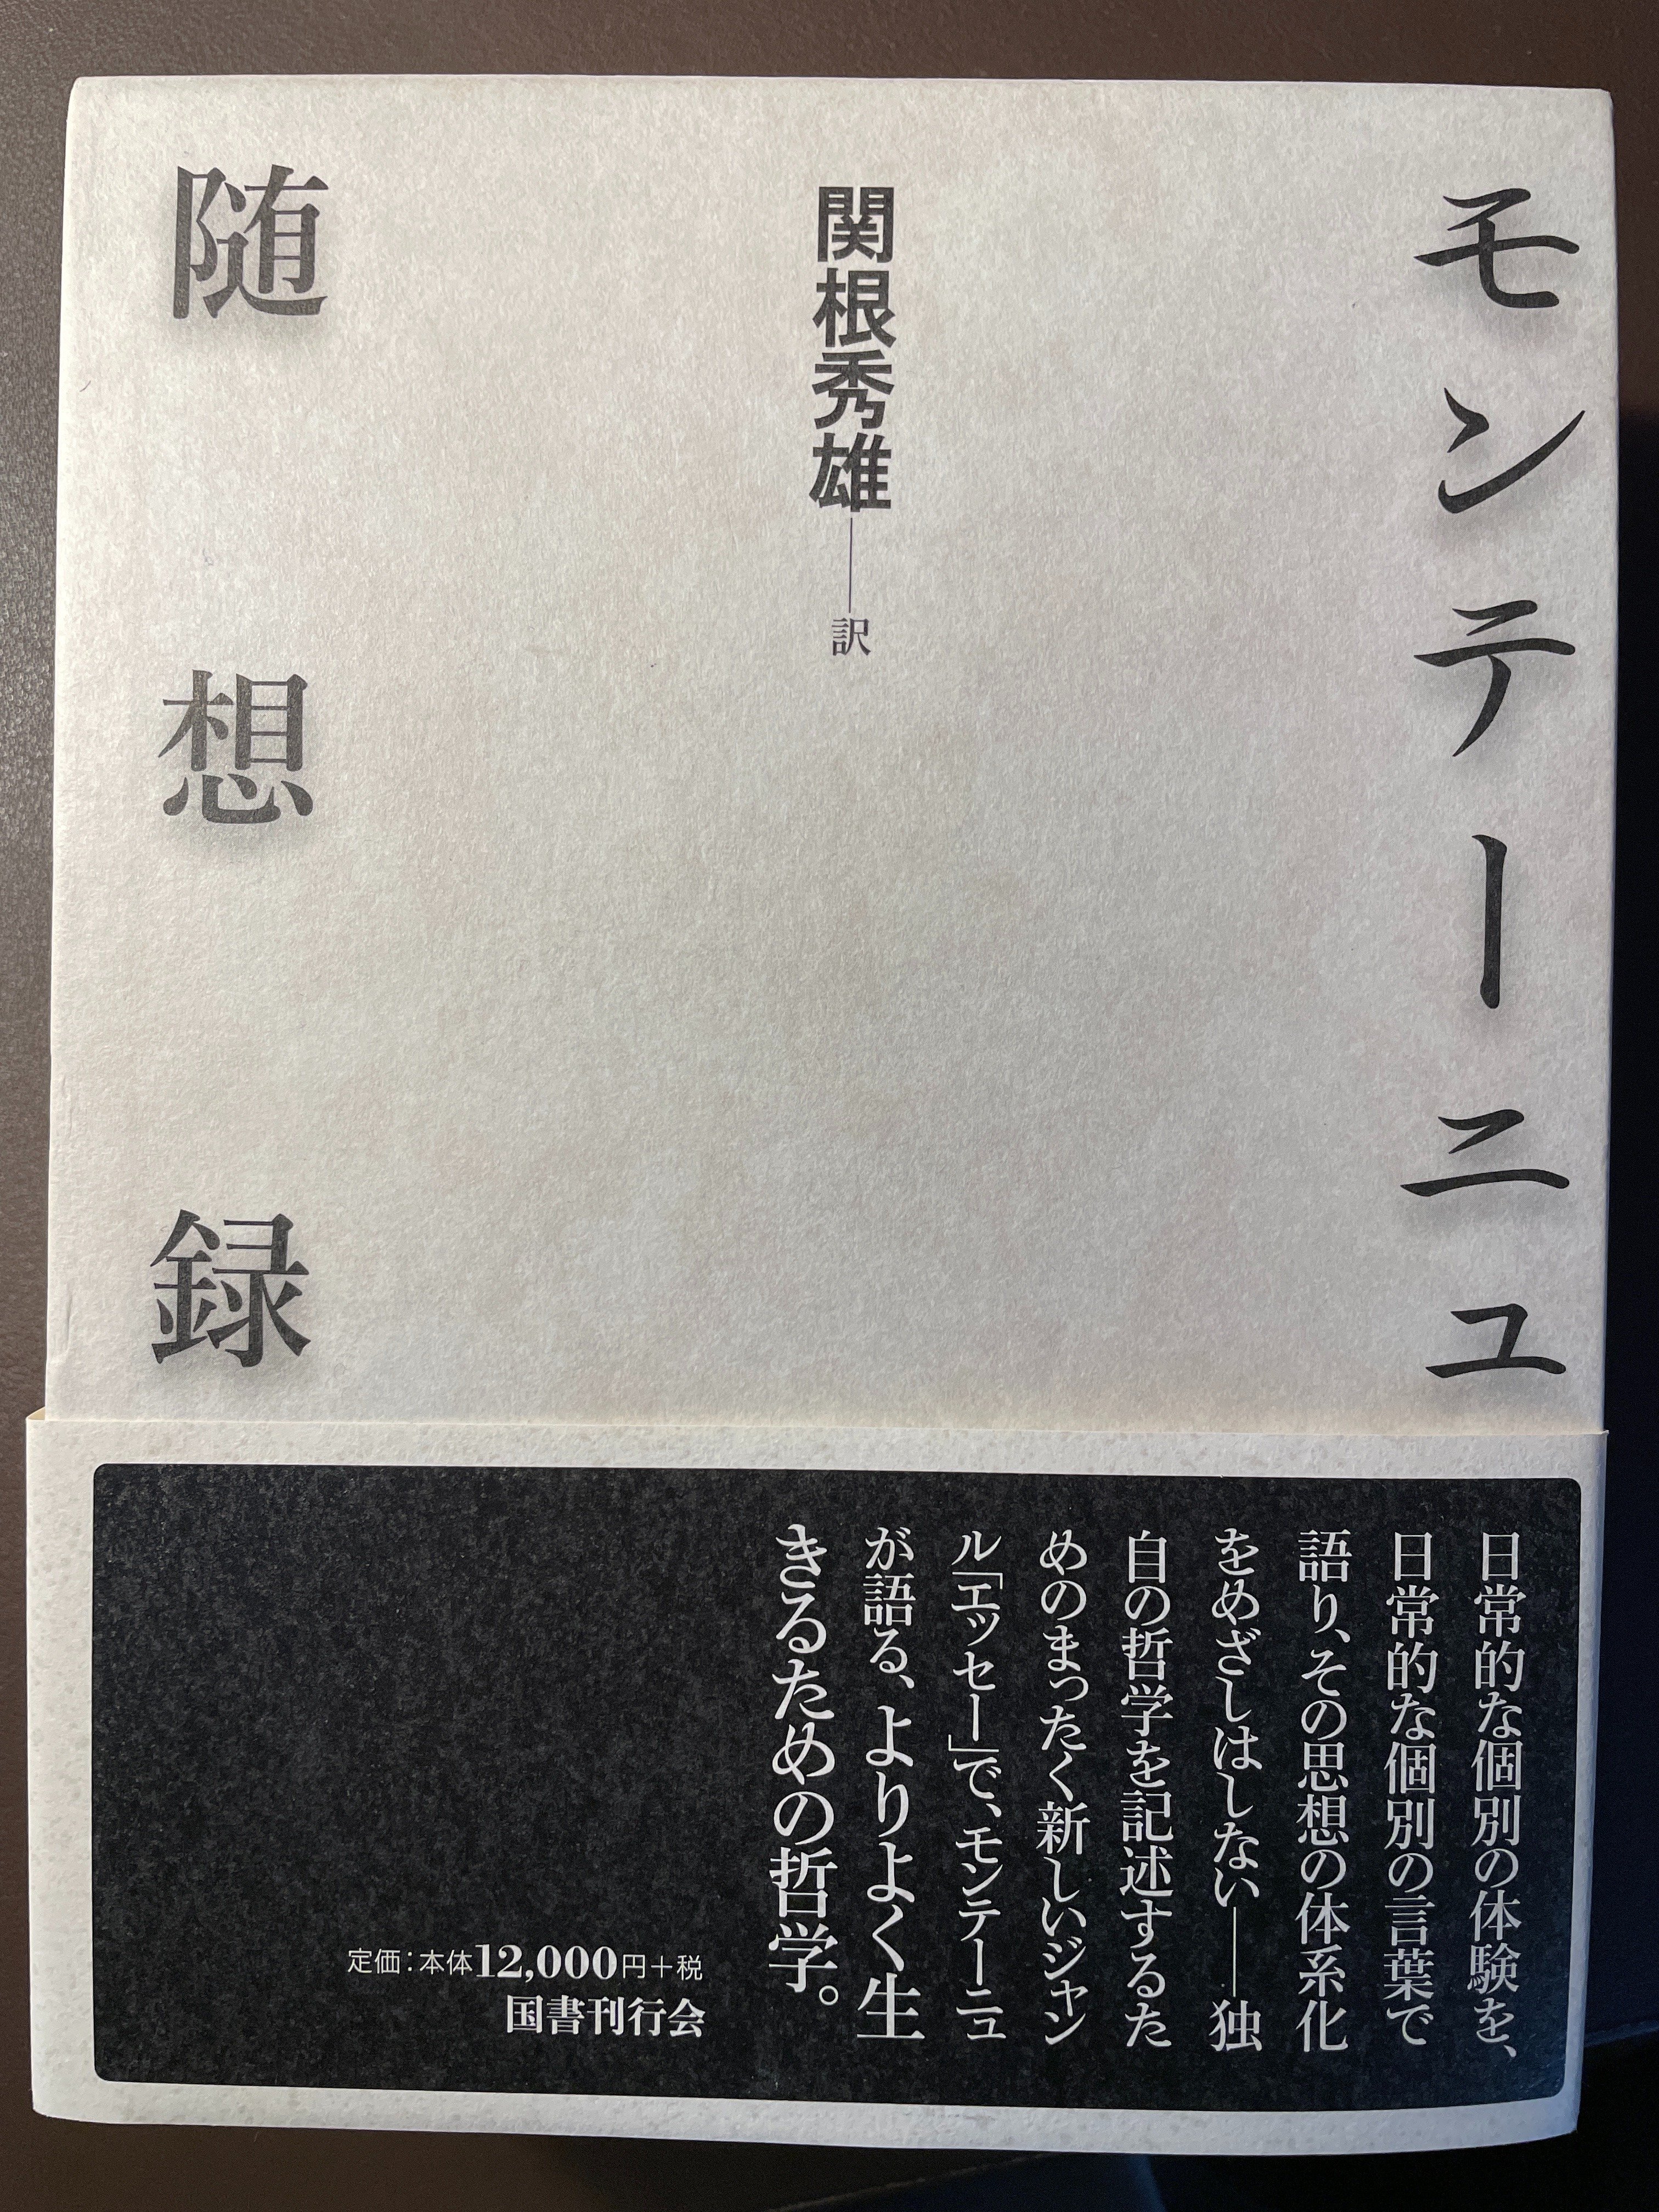 モンテーニュ
関根秀雄――訳
随想録
日常的な個別の体験を、
日常的な個別の言葉で
語り、その思想の体系化
をめざしはしない――独
自の哲学を記述するた
めのまったく新しいジャン
ル「エッセー」で、モンテーニュ
が語る、よりよく生
きるための哲学。
定価：本体12,000円＋税
国書刊行会